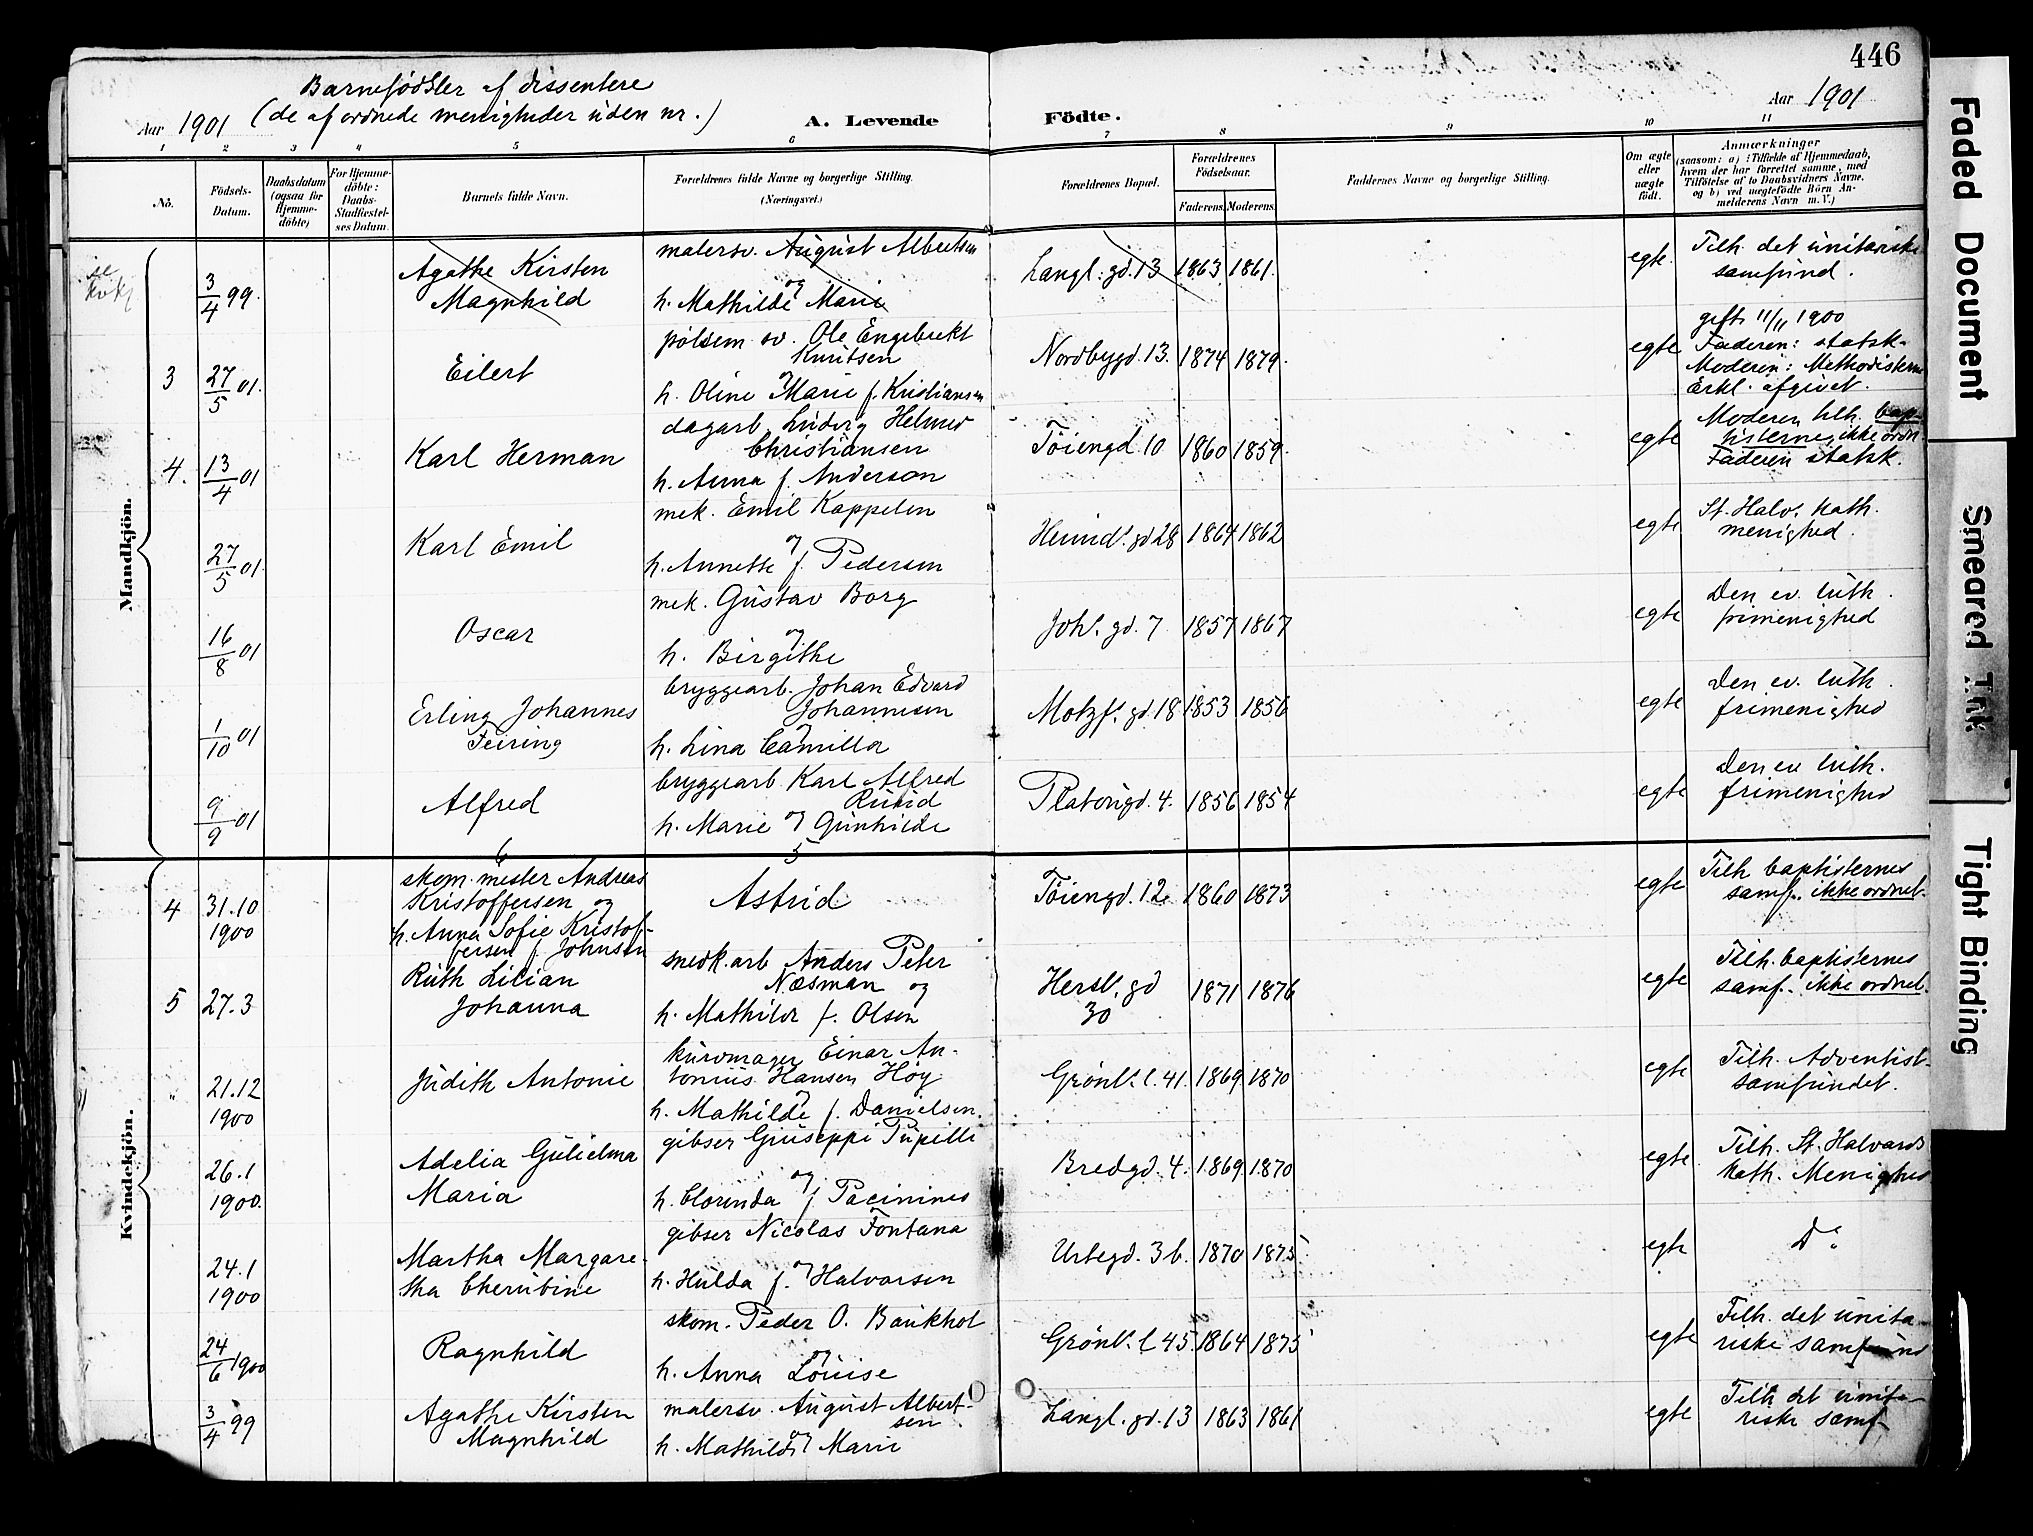 446
Barnefødsler af dissentere
Aar 1901 (de af ordnede menigheder uden nr.)
A. Levende Födte.
Aar 1901
1 2 3 4 5 6 7 8 9 10 11
No.
Födsels-
Datum.
Daabsdatum
(ogsaa for
Hjemme-
döbte)
For Hjemme-
döbte:
Daabs-
Stadfæstel-
ses Datum.
Barnets fulde Navn.
Forældrenes fulde Navne og borgerlige Stilling.
(Næringsvei.)
Forældrenes Bopæl.
Forældrenes
Födselsaar.
Faderens. Moderens.
Faddernes Navne og borgerlige Stilling.
Om ægte
eller
uægte
födt.
Anmærkninger
(saasom: a) i Tilfælde af Hjemmedaab,
hvem der har forrettet samme, med
Tilföielse af to Daabsvidners Navne,
og b) ved uægtefödte Börn An-
melderens Navn m. V.)
Mandkjön.
se
kvkj
3/4 99.
Agathe Kirsten
Magnhild
malersv. August Albertsen
og
h. Mathilde Marie
Langl. gd. 13 1863 1861.
egte
Tilh. det unitariske
samfund.
3 27/5 01.
Eilert
pølsem. sv. Ole Engebrekt
Knutsen
og
h. Oline Marie f. Kristiansen
Nordbygd. 13. 1874 1879.
egte
gift 11/11 1900
Faderen: statsk.
Moderen: Methodisterne
Erkl. afgivet.
4. 13/4 01
Karl Herman
dagarb. Ludvig Helmer
Christiansen
h. Anna f. Anderson
Tøiengd. 10 1860 1859.
egte
Moderen tilh. bap-
tisterne, ikke ordn.
Faderen statsk.
27/5 01.
Karl Emil
mek. Emil Kappelen
og
h. Annette f. Pedersen
Heimd. gd 28 1864 1862
egte
St. Halv. kath.
menighed.
16/8 01
Oscar
mek. Gustav Borg
og
h. Birgithe
Joh. gd. 7 1857 1867
egte
Den ev. luth.
frimenighed
1/10 01
Erling Johannes
Feiring
bryggearb. Johan Edvard
Johannesen
og
h. Lina Camilla
Motzf. gd. 18 1853 1856
egte
Den ev. luth.
frimenighed
9/9 01
Alfred
bryggearb. Karl Alfred
h. Marie og Gunhilde
Platougd. 4. 1856 1854
egte
Den ev luth.
frimenighed
6 5
Kvindekjön.
4 31.10
1900
skom. mester Andreas
Kristoffersen og
h. Anna Sofie Kristof-
fersen f. Johnsen
Astrid
Tøiengd. 12 1860 1873
egte
Tilh baptisternes
samf., ikke ordnet.
5 27.3
Ruth Lilian
Johanna
snedk.arb Anders Peter
Næsman og
h. Mathilde f. Olsen
Hersl. gd
30
1871 1876
egte
Tilh. baptisternes
samf. ikke ordnet.
21.12
1900
Judith Antonie
kurvmager Einar An-
tonius Hansen Høy
og
h. Mathilde f. Danielsen.
Grønl. l. 41. 1869 1870
egte
Tilh. Adventist-
samfundet.
26.1
1900.
Adelia Gulielma
Maria
gibser Giuseppi Pupilli
og
h. Clorinda f. Pacinines
Bredgd. 4. 1869 1870
egte
Tilh. St. Halvards
kath. Menighed
24.1
1900
Martha Margare-
tha Cherubine
gibser Nicolas Fontana
og
h. Hulda f. Halvorsen
Urtegd. 3b. 1870 1875.
egte
Do
24/6 1900
Ragnhild
skom. Peder O. Baukhol
og
h. Anna Louise
Grønl. l 45. 1864 1875
egte
Tilh. det unita-
riske samfund
3/4 99
Agathe Kirsten
Magnhild
malersv. August Albert-
sen
og
h. Mathilde Marie
Langl. gd. 13 1863 1861
egte
Tilh det unita-
riske samf.
Faded Document
Smeared Ink
Tight Binding